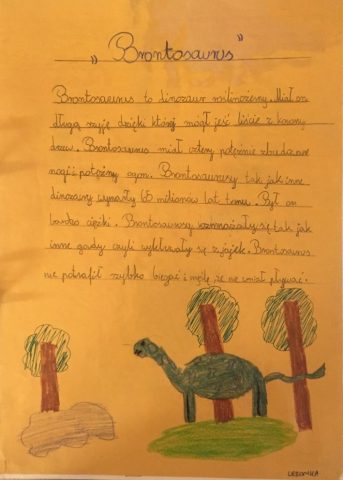 „Brontosaurus”
Brontosaurus to dinozaur roślinożerny. Miał on
długą szyję dzięki której mógł jeść liście z korony
drzew. Brontosaurus miał cztery potężnie zbudowane
nogi i potężny ogon. Brontosaurusy tak jak inne
dinozaury wymarły 65 milionów lat temu. Był on
bardzo ciężki. Brontosaurusy rozmnażały się tak jak
inne gady czyli wykluwały się z jajek. Brontosaurus
nie potrafił szybko biegać i myślę, że nie umiał pływać.
WERONIKA